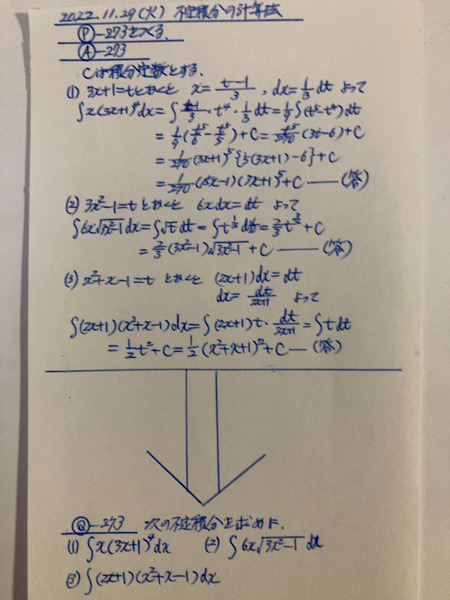 2022.11.29(火) 不定積分の計算試
Ⓟ-273をつくる。
Ⓐ-273
Cは積分定数とする。
(1) 3x+1=tとおくと x=(t-1)/3, dx=1/3dt よって
∫x(3x+1)⁴dx=∫(t-1)/3・t⁴・1/3dt=1/9∫(t⁵-t⁴)dt
=1/9(t⁶/6-t⁵/5)+C=t⁵/270(5t-6)+C
=1/270(3x+1)⁵{5(3x+1)-6}+C
=1/270(15x-1)(3x+1)⁵+C ——(答)
(2) 3x²-1=t とおくと 6xdx=dt よって
∫6x√3x²-1dx=∫√t dt=∫t^(1/2)dt=2/3t^(3/2)+C
=2/3(3x²-1)√3x²-1+C ——(答)
(3) x²+x-1=t とおくと (2x+1)dx=dt
dx=dt/(2x+1) よって
∫(2x+1)(x²+x-1)dx=∫(2x+1)t・dt/(2x+1)=∫t dt
=1/2t²+C=1/2(x²+x+1)²+C—(答)
Ⓠ-273 次の不定積分を求めよ.
(1) ∫x(3x+1)⁴dx (2) ∫6x√3x²-1 dx
(3) ∫(2x+1)(x²+x-1)dx